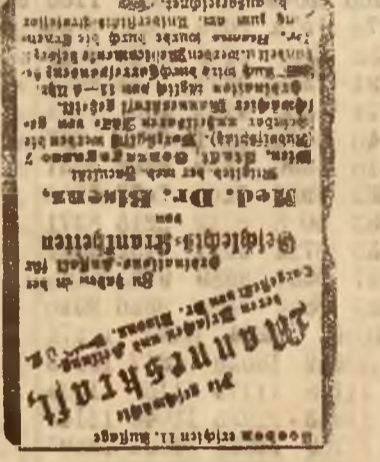 Soeben erschien 11. Auflage
Die geschwächte
Manneskraft,
deren Ursachen und Heilung.
Dargestellt von Dr. Bisenz.
Zu haben in der
Ordinations-Anstalt für
Geschlechts-Krankheiten
von
Med. Dr. Bisenz,
Mitglied der med. Facultät,
Wien, Stadt, Gonzagagasse 7
(Rudolfsplatz). Vorzüglich werden die
scheinbar unheilbaren Fälle von ge-
schwächter Manneskraft geheilt.
Ordination täglich von 11—4 Uhr.
Auch wird durch Correspondenz be-
handelt u. werden Medicamente besorgt.
Dr. Bisenz wurde durch die Ernen-
nung zum am. Universitäts-Professor
h. ausgezeichnet.